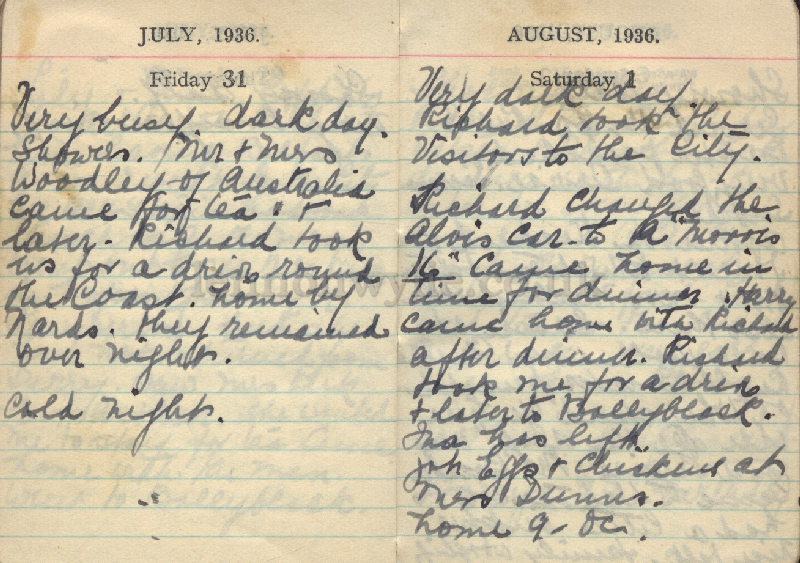 JULY, 1936.
Friday 31
Very busy dark day.
Showers. Mr + Mrs
Woodley of Australia
came for tea. +
later. Richard took
us for a drive round
the Coast. home by
Nards. they remained
over night.
cold night.
AUGUST, 1936.
Saturday 1
Very dark day
Richard took the
Visitors to the City.
Richard changed the
Alvis car to A "Morris
16" came home in
time for dinner. Harry
came home with Richard
after dinner. Richard
took me for a drive
+ later to Ballyblack.
Ina has left
got Eggs + Chickens at
Mrs Dunns.
home 9-oc.